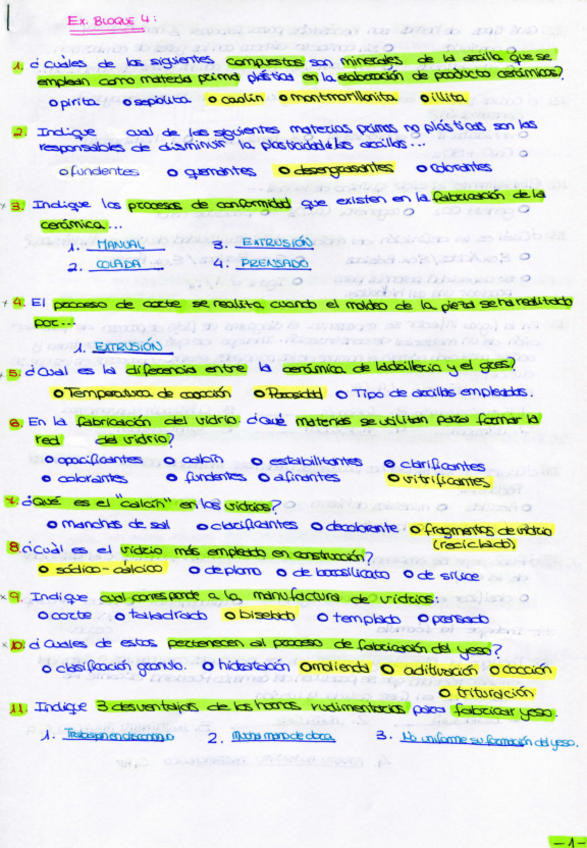 EX. BLOQUE 4:
1. ¿Cuáles de los siguientes compuestos son minerales de la arcilla que se
emplean como materia prima plástica en la elaboración de producto cerámicos?
o pirita o sepiolita o caolín o montmorillonita o illita
2. Indique cual de las siguientes materias primas no plásticas son las
responsables de disminuir la plasticidad de las arcillas...
o fundentes o gemantes o desengrasantes o colorantes
3. Indique los procesos de conformidad que existen en la fabricación de la
cerámica...
1. MANUAL 3. EXTRUSIÓN
2. COLADA 4. PRENSADO
4. El proceso de corte se realita cuando el moldeo de la pieta se ha realitado
por...
1. EXTRUSIÓN
5. ¿Cual es la diferencia entre la cerámica de ladrillería y el gres?
o Temperatura de cocción o Porosidad o Tipo de arcillas empleadas.
6. En la fabricación del vidrio ¿Qué materias se utilitan para formar la
red del vidrio?
o opacificantes o calcín o estabilitantes o clarificantes
o colorantes o fundentes o afinantes o vitrificantes
7. ¿Qué es el "calcín" en los vidrios?
o manchas de sal o clarificantes o decolorante o fragmentos de vidrio
(reciclado)
8. ¿Cuál es el vidrio más empleado en construcción?
o sódico-cálcico o de plomo o de borosilicato o de sílice
9. Indique cual corresponde a la manufactura de vidrios:
o corte o taladrado o biselado o templado o prensado
10. ¿Cuales de estos pertenecen al proceso de fabricación del yeso?
o clasificación granulo. o hidratación o molienda o aditivación o cocción
o trituración
11. Indique 3 desventajas de los hornos rudimentarios para fabricar yeso.
1. Trabajo en discontinuo 2. Mucha mano de obra 3. No uniforme su formación del yeso.
-1-